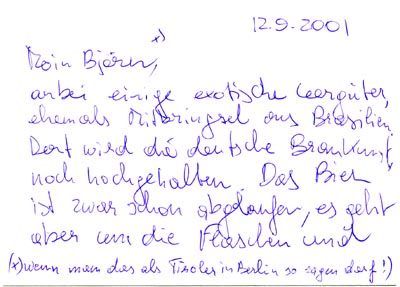 12.9.2001
*)
Moin Björn,
anbei einige exotische Leergüter,
ehemals Mitbringsel aus Brasilien.
Dort wird die deutsche Braukunst
noch hochgehalten. Das Bier
ist zwar schon abgelaufen, es geht
aber um die Flaschen und
(*) wenn man das als Tiroler in Berlin so sagen darf!)